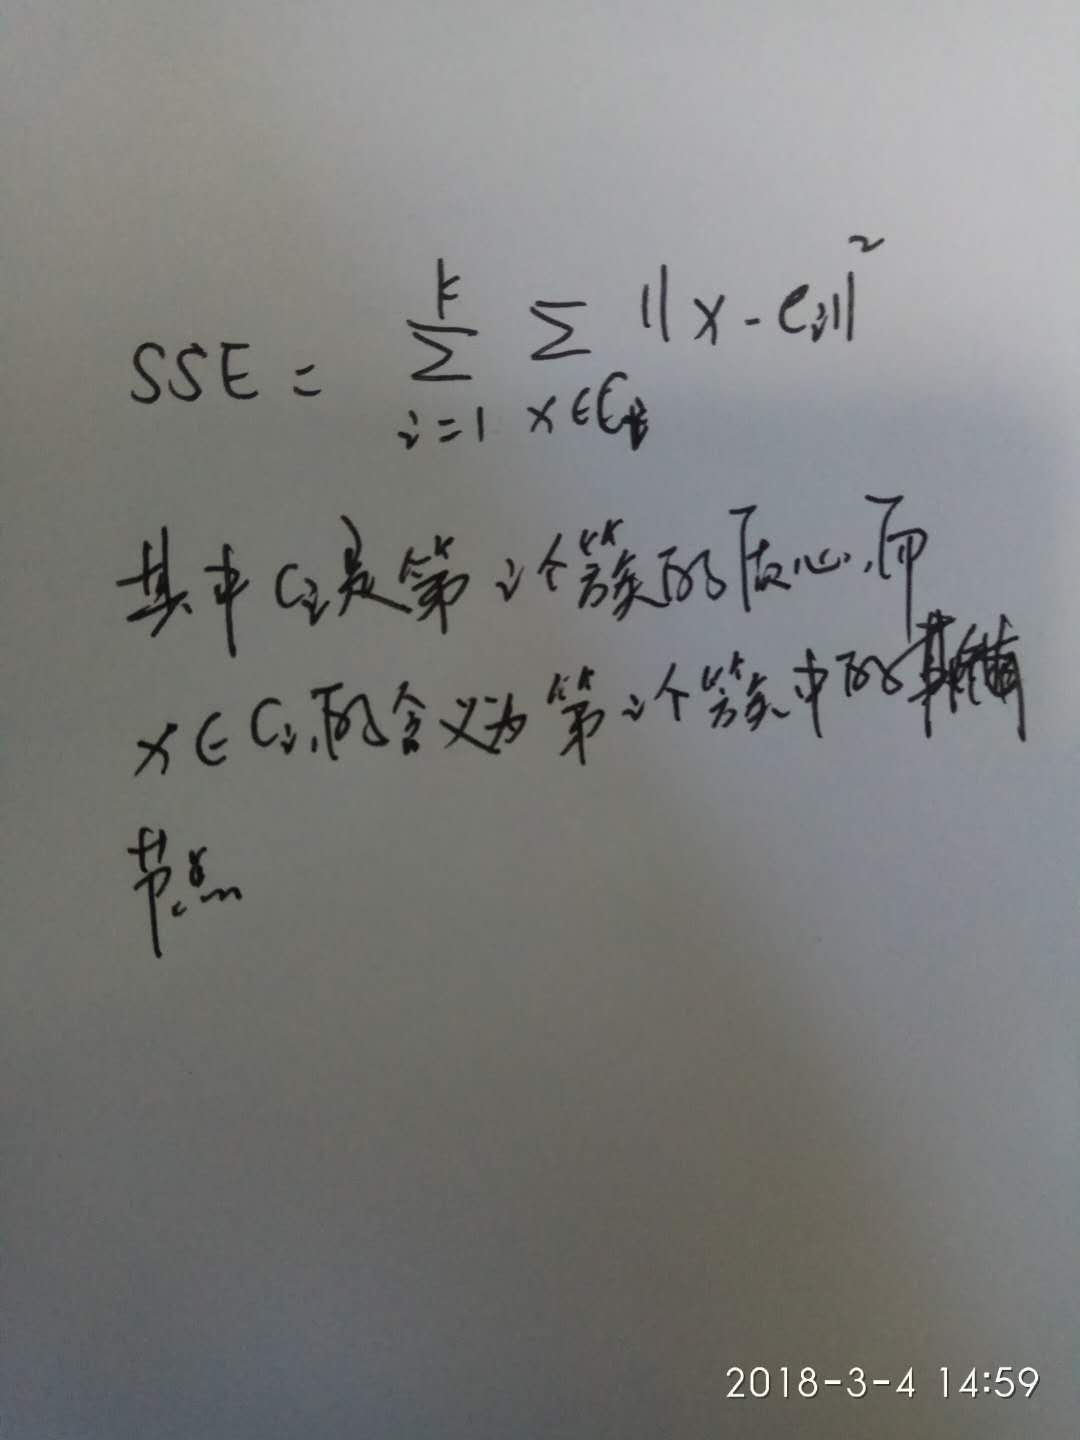 SSE = \sum_{i=1}^{k} \sum_{x∈C_i} ||x - c_i||²
其中 Ci是第 i个簇的质心,而
x∈Ci,的含义为第i个簇中的
节点
2018-3-4 14:59